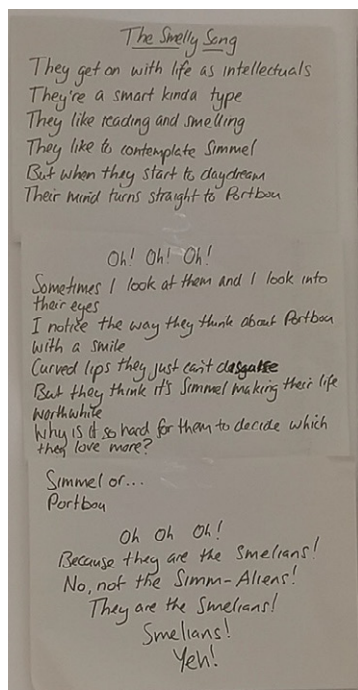 The Smelly Song
They get on with life as intellectuals
They're a smart kinda type
They like reading and smelling
They like to contemplate Simmel
But when they start to daydream
Their mind turns straight to Portbou
Oh! Oh! Oh!
Sometimes I look at them and I look into
their eyes
I notice the way they think about Portbou
with a smile
Curved lips they just can't disguise
But they think it's Simmel making their life
worthwhile
Why is it so hard for them to decide which
they love more?
Simmel or...
Portbou
Oh Oh Oh!
Because they are the Smelians!
No, not the Simm-Aliens!
They are the Smelians!
Smelians!
Yeh!